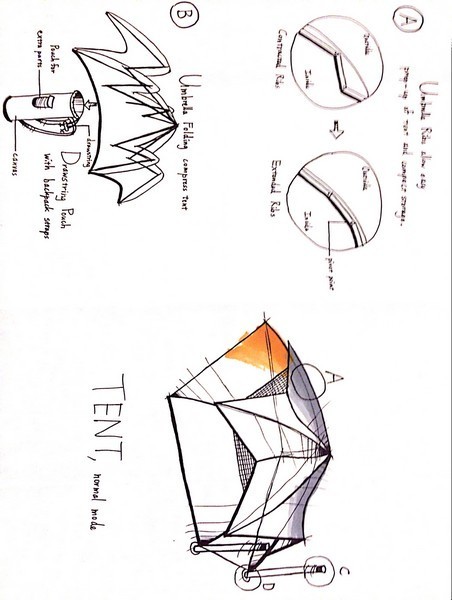 A
Umbrella Ribs allow easy
pop-up of tent and compact storage.
Outside
Inside
Contracted Ribs
Outside
Inside
Extended Ribs
pivot point
B
Umbrella Folding compress tent
drawstring
Pouch for
extra parts
canvas
Drawstring Pouch
with backpack straps
A
C
D
TENT, normal mode